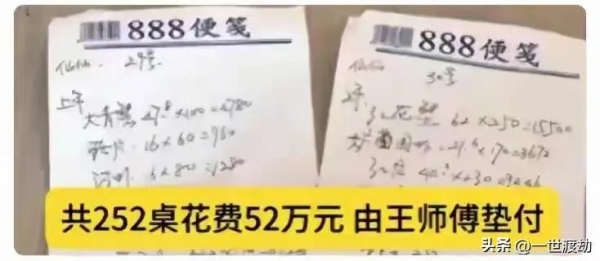 888便笺
29号
上午
大青蟹 47.8×100=4780
片 16×60=960
16×80=1280
888便笺
30号
花蟹 62×250=15500
21.6×170=3672
共252桌花费52万元 由王师傅垫付
头条 @一世渡劫